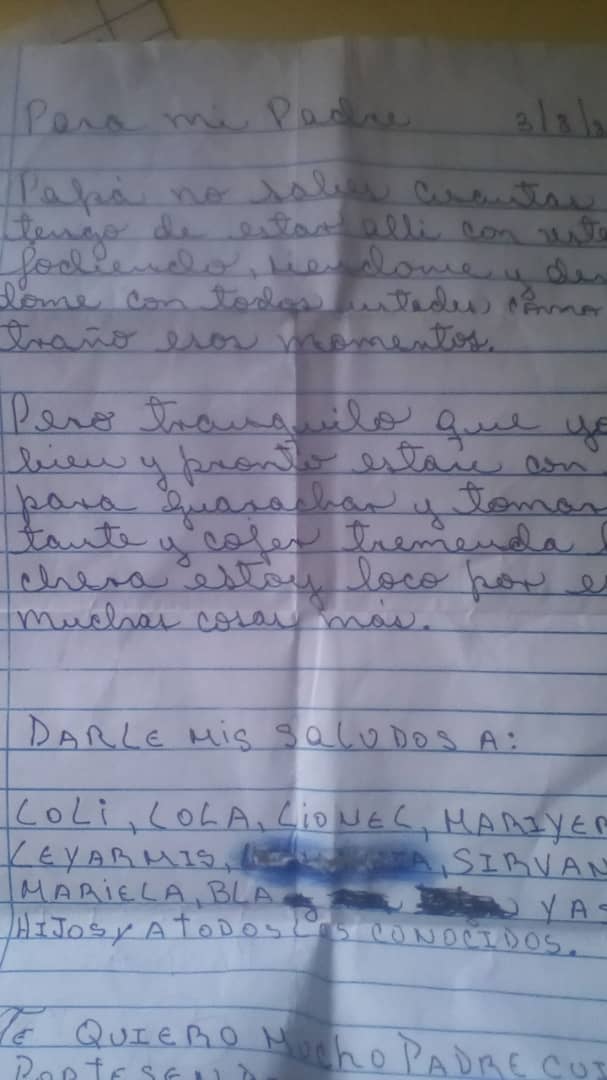 Para mi Padre 3/8/
Papá no sabes cuantas
tengo de estar alli con uste
jodiendo, riendome y des
dome con todos ustedes cómo
traño esos momentos.
Pero tranquilo que yo
bien y pronto estaré con
para guarachar y tomar
tante y cojer tremenda
chera estoy loco por e
muchas cosas más.
DARLE MIS SALUDOS A:
LOLI, LOLA, LIONEL, MARIYER
LEYARMIS, SIRVAN
MARIELA, BLA Y AS
HIJOS Y A TODOS LOS CONOCIDOS.
TE QUIERO MUCHO PADRE CUI
PORTESEN